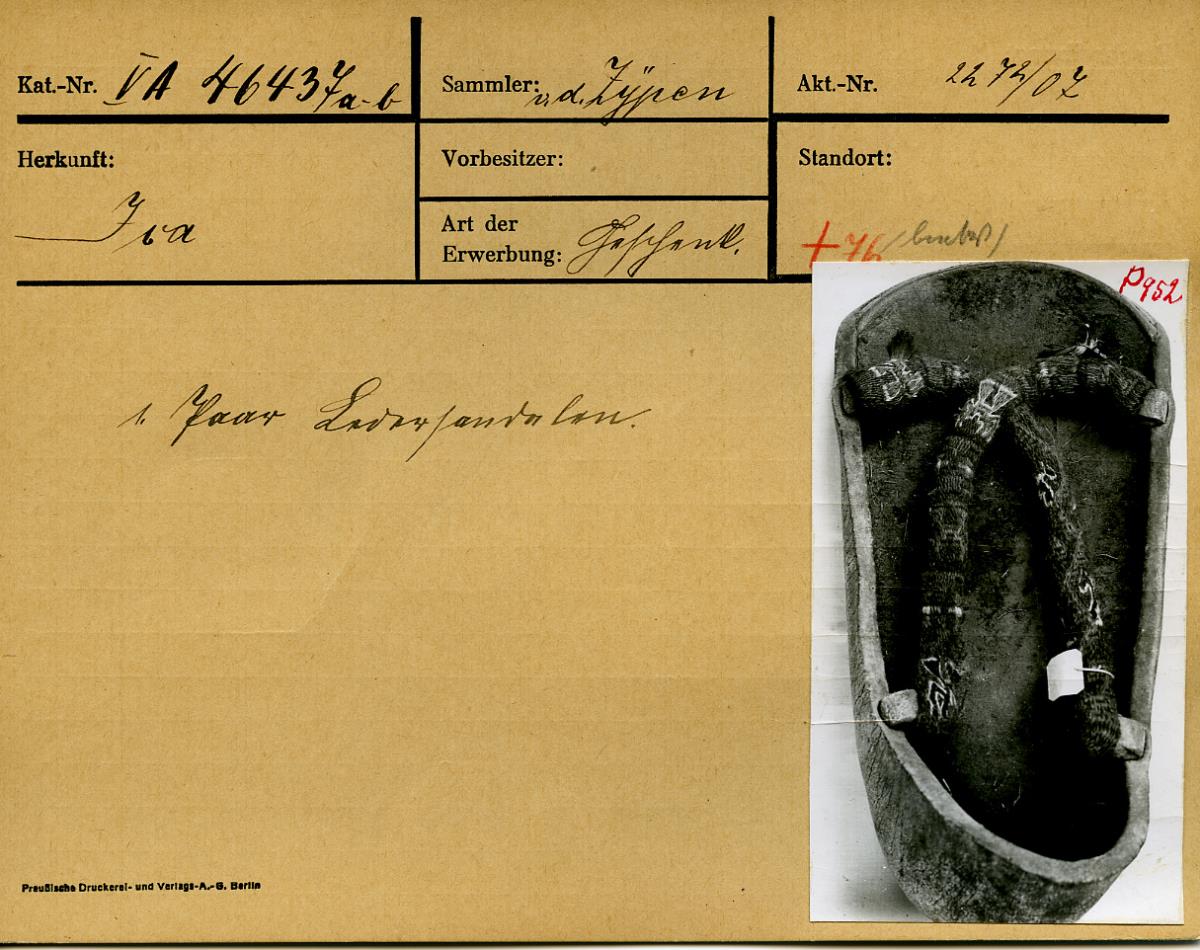 Kat.-Nr. VA 46437a-b
Sammler: v. d. Zÿpen
Akt.-Nr. 2272/07
Herkunft:
Ica
Vorbesitzer:
Art der
Erwerbung: Geschenk.
Standort:
+76
P952
1. Paar Ledersandalen.
Preußische Druckerei- und Verlags-A.-G. Berlin